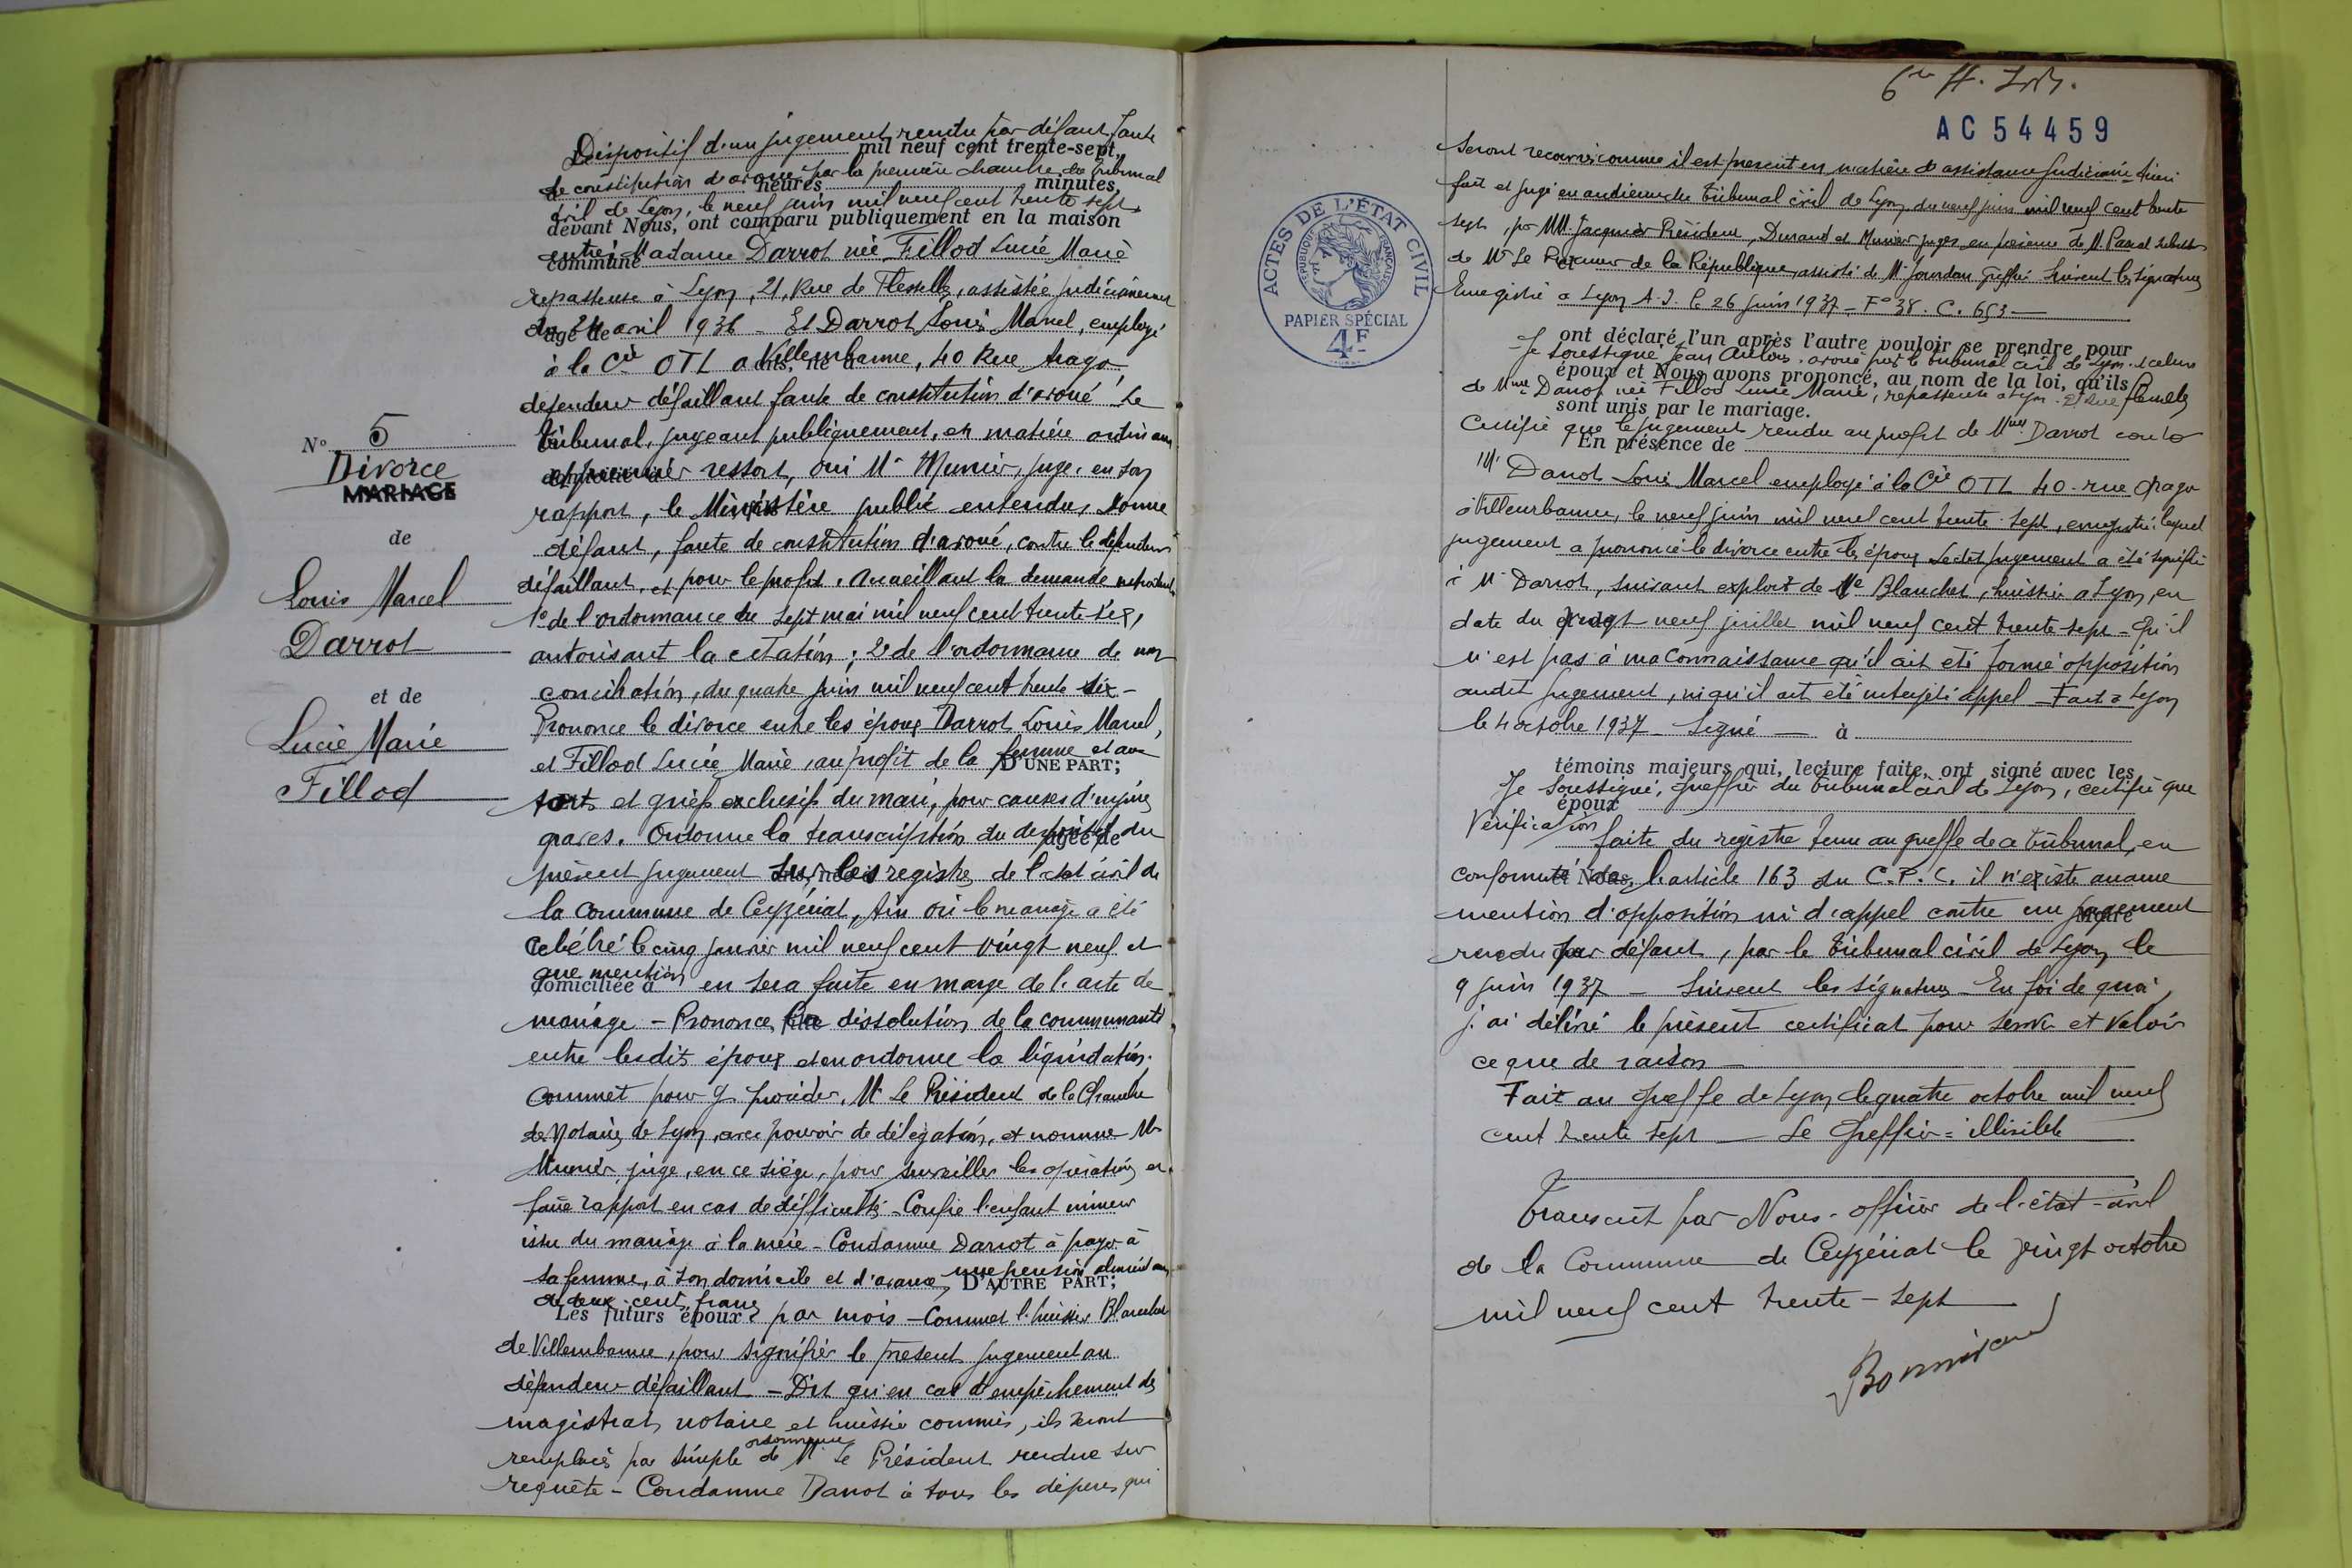 N° 5
Divorce
MARIAGE
de
Louis Marcel
Darrot
et de
Lucie Marie
Fillod
Dispositif d'un jugement rendu par défaut, faute
mil neuf cent trente-sept,
de constitution d'avoué par la première chambre du Tribunal
heures minutes,
civil de Lyon, le neuf juin mil neuf cent trente sept,
devant Nous, ont comparu publiquement en la maison
commune
entre: Madame Darrot née Fillod Lucie Marie
repasseuse à Lyon, 21, Rue de Flesselles, assistée judiciairement
âgé de
du 24 avril 1936 - Et Darrot Louis Marcel, employé
ans, né à
à la Cie OTL à Villeurbanne, 40 Rue Arago,
défendeur défaillant faute de constitution d'avoué. Le
Tribunal, jugeant publiquement, en matière ordinaire
et premier ressort, oui Mr Munier, juge, en son
rapport, le Ministère public entendu, donne
défaut, faute de constitution d'avoué, contre le défendeur
défaillant, et pour le profit, accueillant la demande
1° de l'ordonnance du sept mai mil neuf cent trente six,
autorisant la citation; 2° de l'ordonnance de non
conciliation, du quatre juin mil neuf cent trente six -
Prononce le divorce entre les époux Darrot Louis Marcel,
et Fillod Lucie Marie, au profit de la femme et aux
D'UNE PART;
torts et griefs exclusifs du mari, pour causes d'injures
graves. Ordonne la transcription du dispositif du
âgée de
présent jugement sur les registres de l'état civil de
la Commune de Ceyzériat, Ain où le mariage a été
célébré le cinq janvier mil neuf cent vingt neuf et
que mention en sera faite en marge de l'acte de
domiciliée à
mariage - Prononce la dissolution de la communauté
entre lesdits époux et en ordonne la liquidation.
Commet pour y procéder, Mr Le Président de la Chambre
des Notaires de Lyon, avec pouvoir de délégation, et nomme Mr
Munier, juge, en ce siège, pour surveiller les opérations et
faire rapport en cas de difficultés - Confie l'enfant mineur
issu du mariage à la mère - Condamne Darrot à payer à
sa femme, à son domicile et d'avance une pension alimentaire
D'AUTRE PART;
de deux cents francs par mois - Commet l'huissier Blanchet
Les futurs époux
de Villeurbanne, pour signifier le présent jugement au
défendeur défaillant - Dit qu'en cas d'empêchement des
magistrat, notaire et huissier commis, ils seront
remplacés par simple ordonnance de Mr Le Président rendue sur
requête - Condamne Darrot à tous les dépens qui
AC 54459
seront recouvrés comme il est prescrit en matière d'assistance judiciaire ainsi
fait et jugé en audience du Tribunal civil de Lyon, du neuf juin mil neuf cent trente
sept, par MM. Jacquier Président, Durand et Munier juges en présence de M. Pascal substitut
de Mr Le Procureur de la République, assisté de Mr Jourdan greffier suivent les signatures
Enregistré à Lyon A.J. le 26 juin 1937 - F° 38. C. 653 -
ont déclaré l'un après l'autre vouloir se prendre pour
Je soussigné Jean avoué près le Tribunal civil de Lyon et celui
époux et Nous avons prononcé, au nom de la loi, qu'ils
de Mme Darrot née Fillod Lucie Marie, repasseuse à Lyon 21 Rue Flesselles
sont unis par le mariage.
Certifie que le jugement rendu au profit de Mme Darrot contre
En présence de
Mr Darrot Louis Marcel employé à la Cie OTL 40 rue Arago
à Villeurbanne, le neuf juin mil neuf cent trente sept, enregistré: lequel
jugement a prononcé le divorce entre les époux. Ledit jugement a été signifié
à Mr Darrot, suivant exploit de Me Blanchet, huissier à Lyon, en
date du vingt neuf juillet mil neuf cent trente sept - Qu'il
n'est pas à ma connaissance qu'il ait été formé opposition
audit jugement, ni qu'il ait été interjeté appel - Fait à Lyon
le 4 octobre 1937 - Signé - à
témoins majeurs qui, lecture faite, ont signé avec les
Je soussigné, greffier du Tribunal civil de Lyon, certifie que
époux
Vérification faite du registre tenu au greffe de ce Tribunal, en
conformité de l'article 163 du C.P.C. il n'existe aucune
mention d'opposition ni d'appel contre un jugement
rendu par défaut, par le Tribunal civil de Lyon le
9 juin 1937 - Suivent les signatures - En foi de quoi
j'ai délivré le présent certificat pour servir et valoir
ce que de raison
Fait au greffe de Lyon le quatre octobre mil neuf
cent trente sept - Le Greffier = illisible
Transcrit par Nous - officier de l'état-civil
de la Commune de Ceyzériat le vingt octobre
mil neuf cent trente-sept
ACTES DE L'ÉTAT CIVIL
RÉPUBLIQUE FRANÇAISE
PAPIER SPÉCIAL
4F